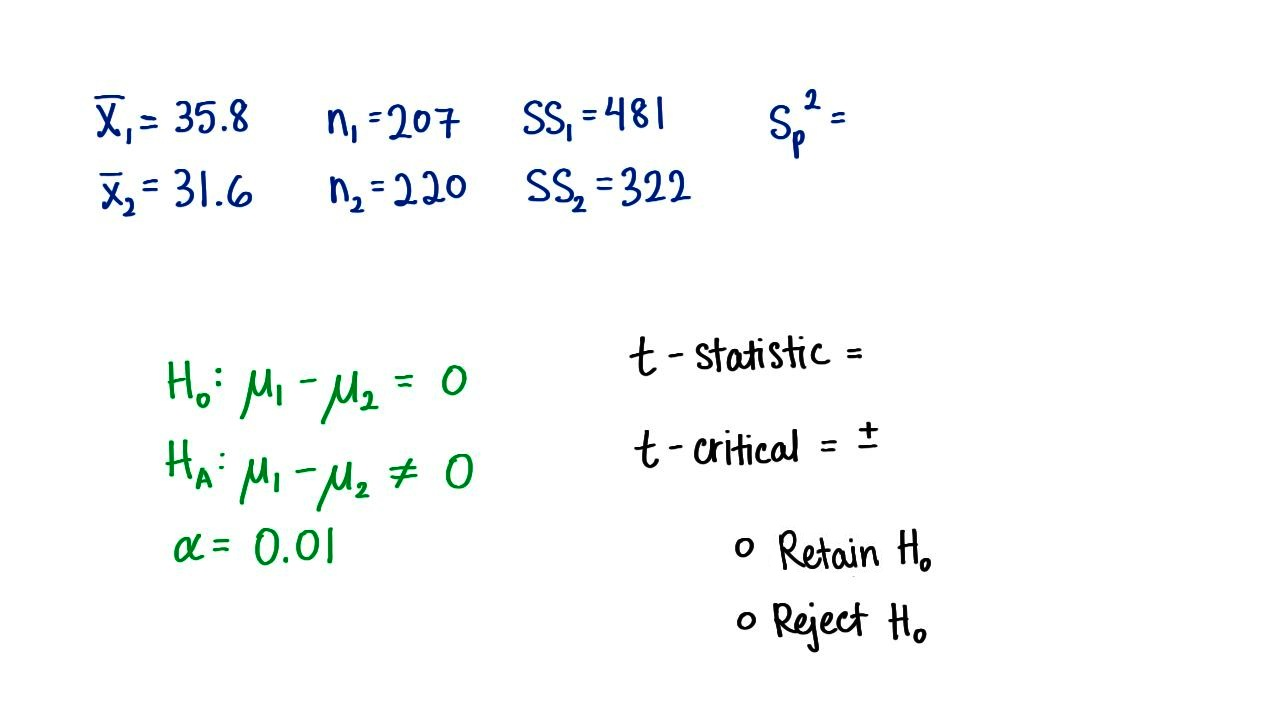 x̄₁ = 35.8 n₁ = 207 SS₁ = 481 Sp² =
x̄₂ = 31.6 n₂ = 220 SS₂ = 322
H₀: μ₁ - μ₂ = 0
H_A: μ₁ - μ₂ ≠ 0
α = 0.01
t - statistic =
t - critical = ±
o Retain H₀
o Reject H₀